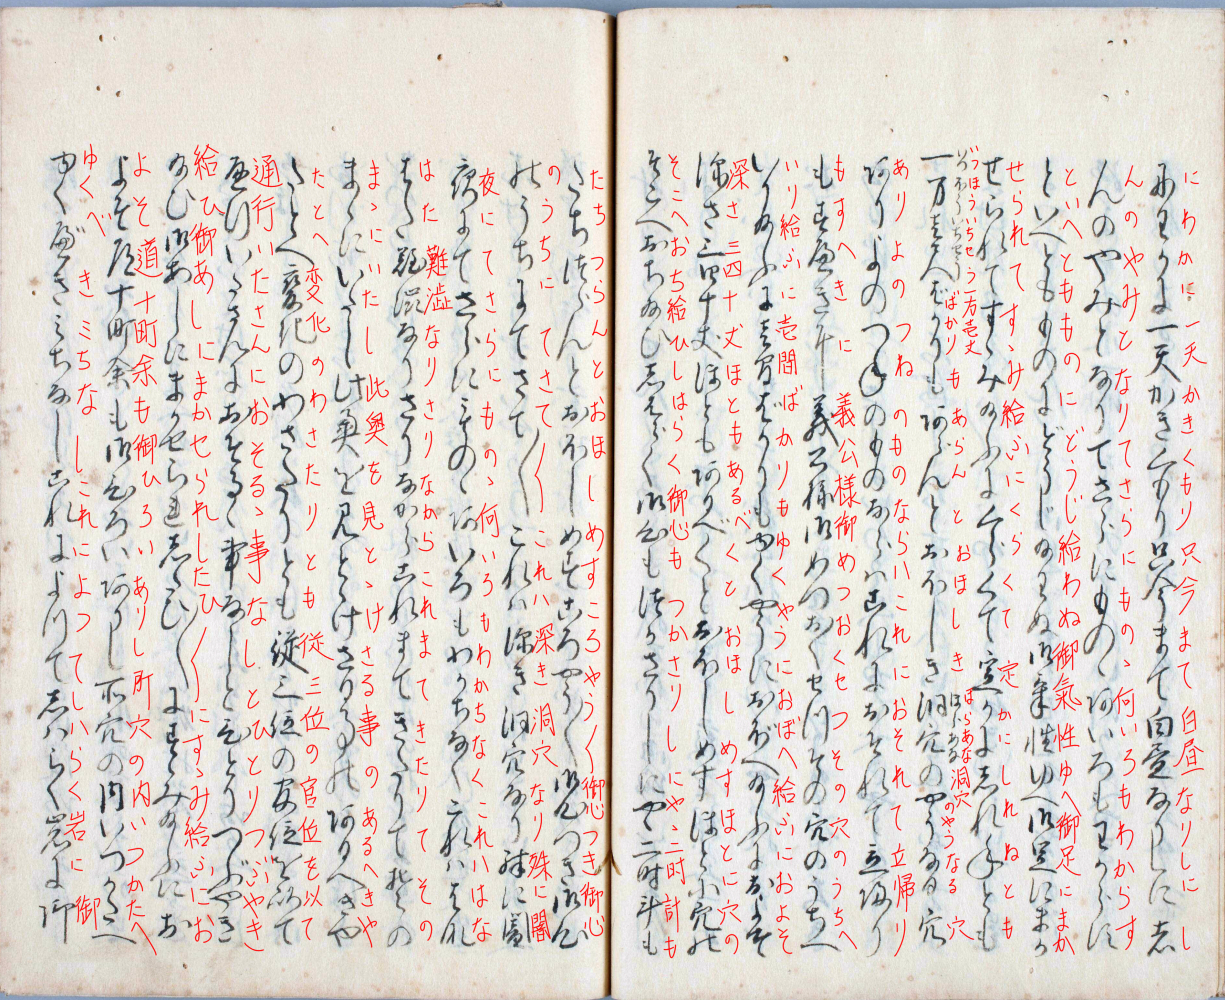 にわかに一天かきくもり只今まて白昼なりしにし
んのやみとなりてさらにものゝ何いろもわからす
といへとももものにどうじ給わぬ御氣性ゆへ御足にまか
せられてすゝみ給ふにくらくて定かにしれねとも
いつほういちセう一方壱丈ばかりもあらんとおほしきほらあな洞穴のやうなる穴
ありよのつねのものならいこれにおそれて立帰り
もすへきに義公様御めつおくセつその穴のうちへ
いり給ふに壱間ばかりもゆくやうにおぼへ給ふにおよそ
深さ三四十丈ほともあるべくとおほしめすほとに穴の
そこへおち給ひしはらく御心もつかさりしにやゝ二時計も
たちつらんとおほしめすころやう〱御心つき御心
のうちにてさて〱これハ深き洞穴なり殊に闇
夜にてさらにものゝ何いろもわかちなくこれハはな
はた難澁なりさりなからこれまてきたりてその
まゝにいたし此奥を見とゝけさる事のあるへきや
たとへ変化のわさたりとも従三位の官位を以て
通行いたさんにおそるゝ事なしとひとりつぶやき
給ひ御あしにまかセられしたひ〱にすゝみ給ふにお
よそ道十町余も御ひろいありし所穴の内いつかたへ
ゆくべきミちなしこれによつてしハらく岩に御